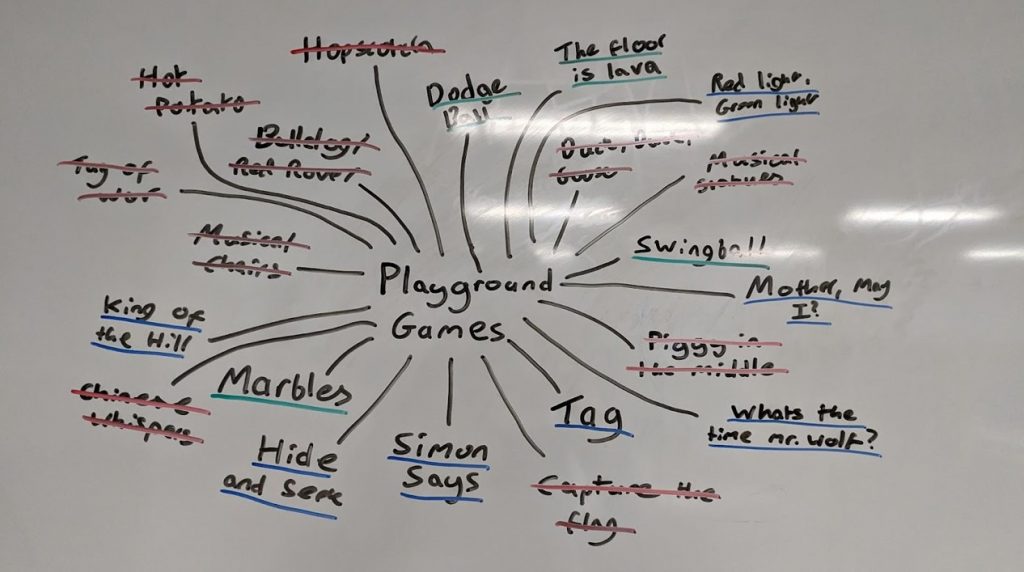 Hopscotch
The floor
is lava
Hot
Potato
Dodge
Ball
Red light,
Green light
Bulldogs/
Red Rover
Duck, Duck,
Goose
Musical
statues
Tug of
war
Musical
Chairs
Swingball
Playground
Games
Mother, May
I?
King of
the Hill
Piggy in
the middle
Chinese
Whispers
Marbles
Tag
Whats the
time mr. wolf?
Hide
and Seek
Simon
Says
Capture the
flag